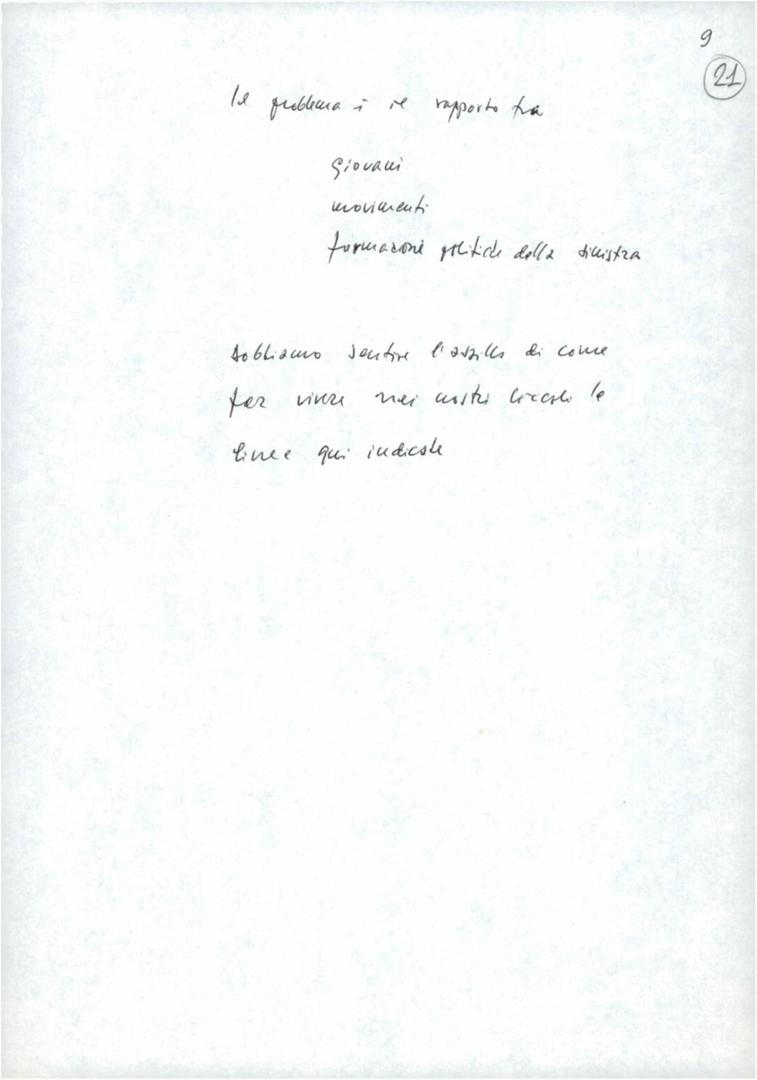 9
21
Il problema è il rapporto tra
Giovani
movimenti
formazioni politiche della sinistra
Dobbiamo sentire l'assillo di come
far vivere nei nostri circoli le
linee qui indicate